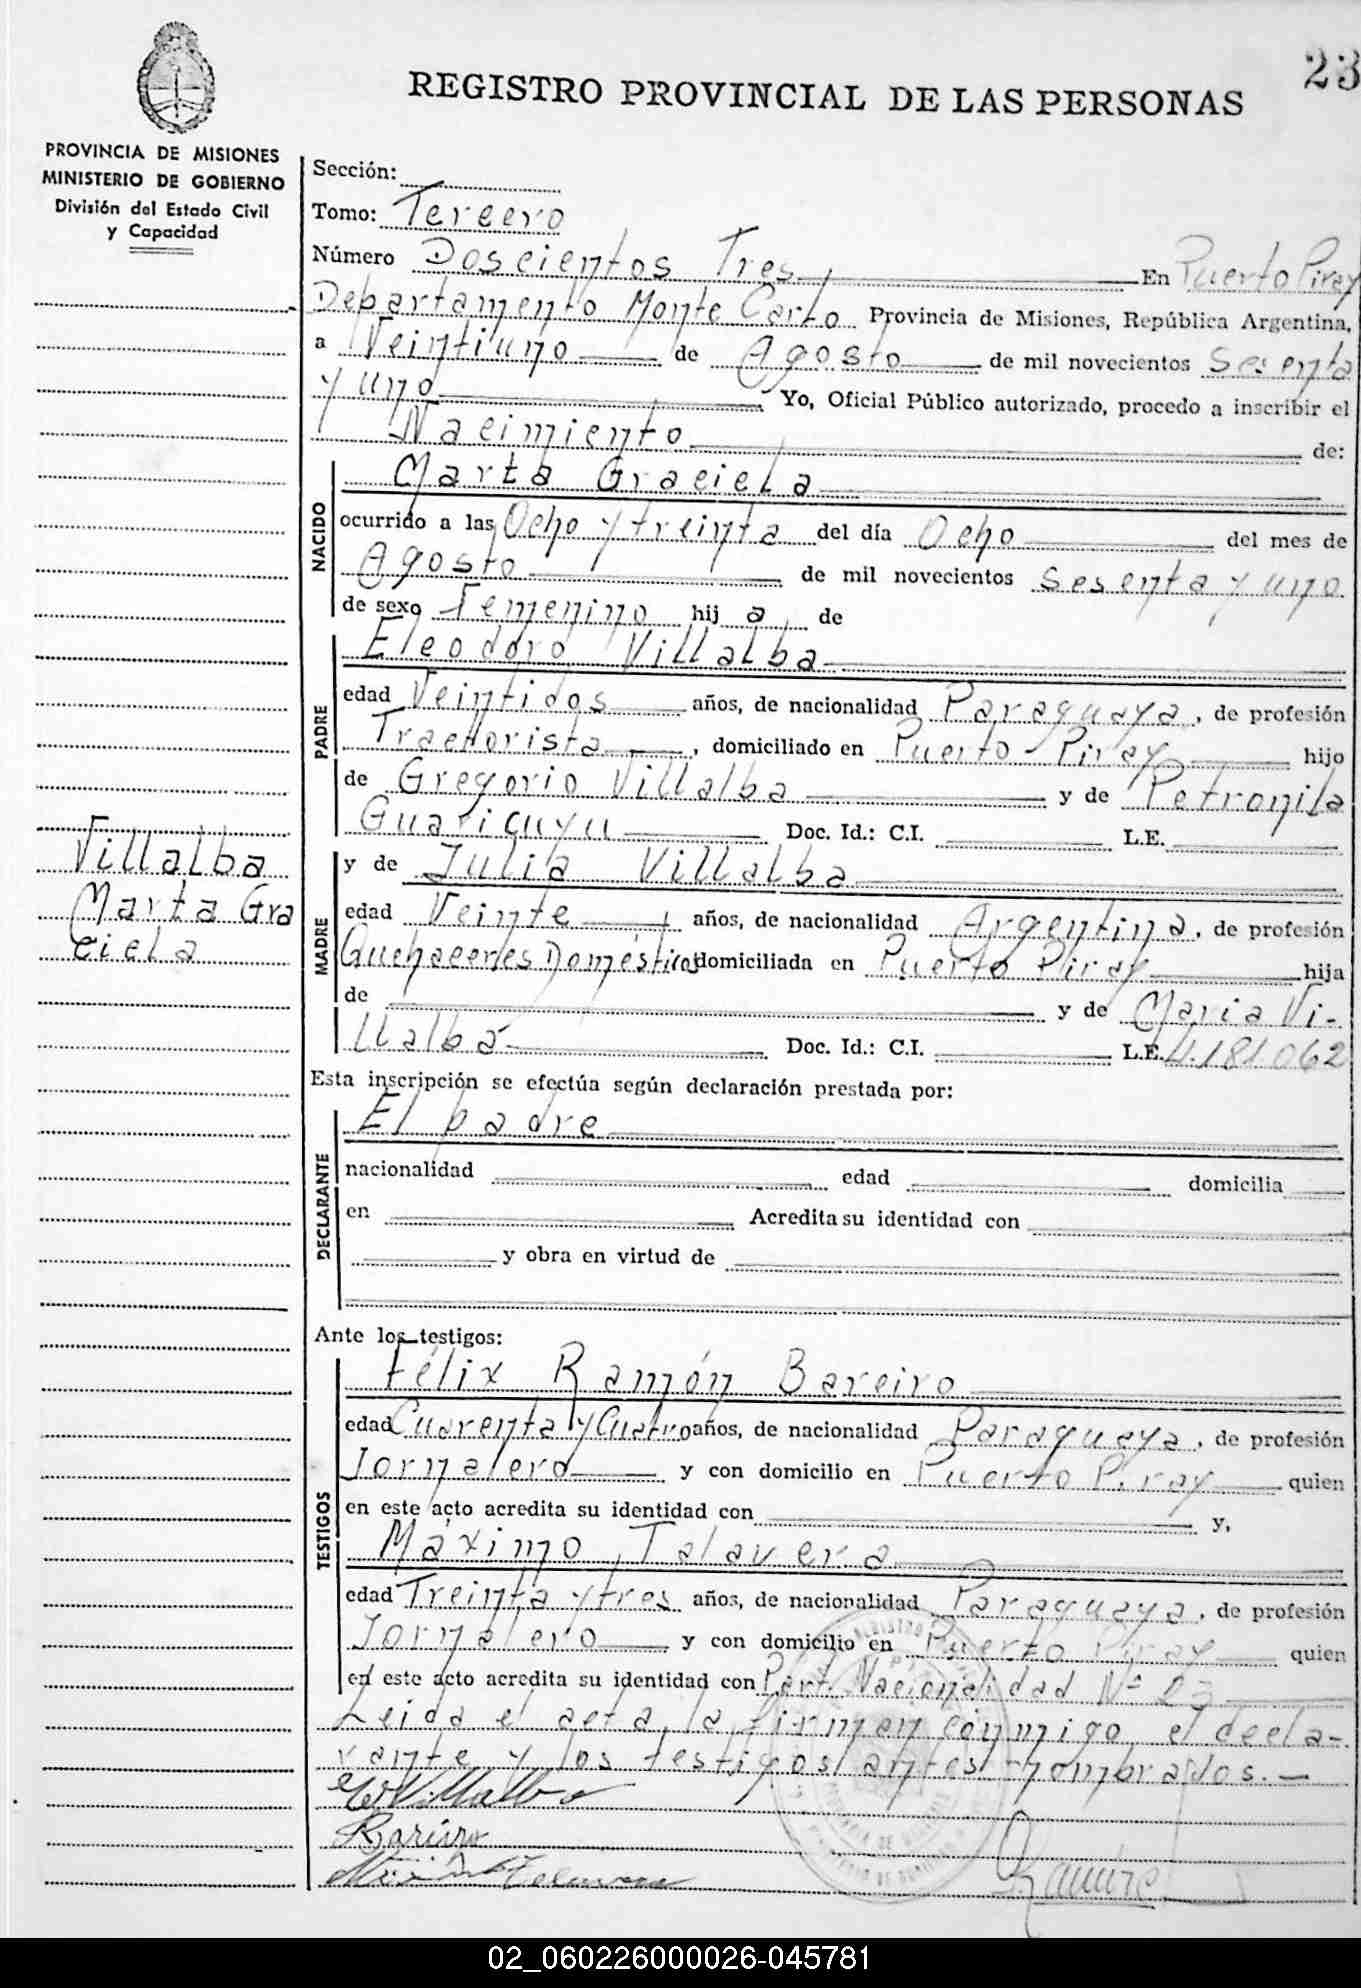 23
REGISTRO PROVINCIAL DE LAS PERSONAS
PROVINCIA DE MISIONES
MINISTERIO DE GOBIERNO
División del Estado Civil
y Capacidad
Sección:
Tomo: Tercero
Número Doscientos Tres En Puerto Piray
Departamento Monte Carlo Provincia de Misiones, República Argentina,
a Veintiuno de Agosto de mil novecientos Sesenta
y uno Yo, Oficial Público autorizado, procedo a inscribir el
Nacimiento de:
NACIDO
Marta Graciela
ocurrido a las Ocho y treinta del día Ocho del mes de
Agosto de mil novecientos Sesenta y uno
de sexo Femenino hij a de
PADRE
Eleodoro Villalba
edad Veintidos años, de nacionalidad Paraguaya, de profesión
Tractorista, domiciliado en Puerto Piray hijo
de Gregorio Villalba y de Petronila
Doc. Id.: C.I. L.E.
Villalba
Marta Gra
ciela
MADRE
y de Julia Villalba
edad Veinte años, de nacionalidad Argentina, de profesión
Quehaceres Domésticos domiciliada en Puerto Piray hija
de y de Maria Vi-
llalba Doc. Id.: C.I. L.E. 4.181.062
Esta inscripción se efectúa según declaración prestada por:
DECLARANTE
El padre
nacionalidad edad domicilia
en Acredita su identidad con
y obra en virtud de
Ante los testigos:
TESTIGOS
Félix Ramón Bareiro
edad Cuarenta y Cuatro años, de nacionalidad Paraguaya, de profesión
Jornalero y con domicilio en Puerto Piray quien
en este acto acredita su identidad con y,
Máximo Talavera
edad Treinta y tres años, de nacionalidad Paraguaya, de profesión
Jornalero y con domicilio en Puerto Piray quien
en este acto acredita su identidad con Part. Nacionalidad Nº 23
Leida el acta, la firman conmigo, el decla-
rante y los testigos antes nombrados.—
02_060226000026-045781